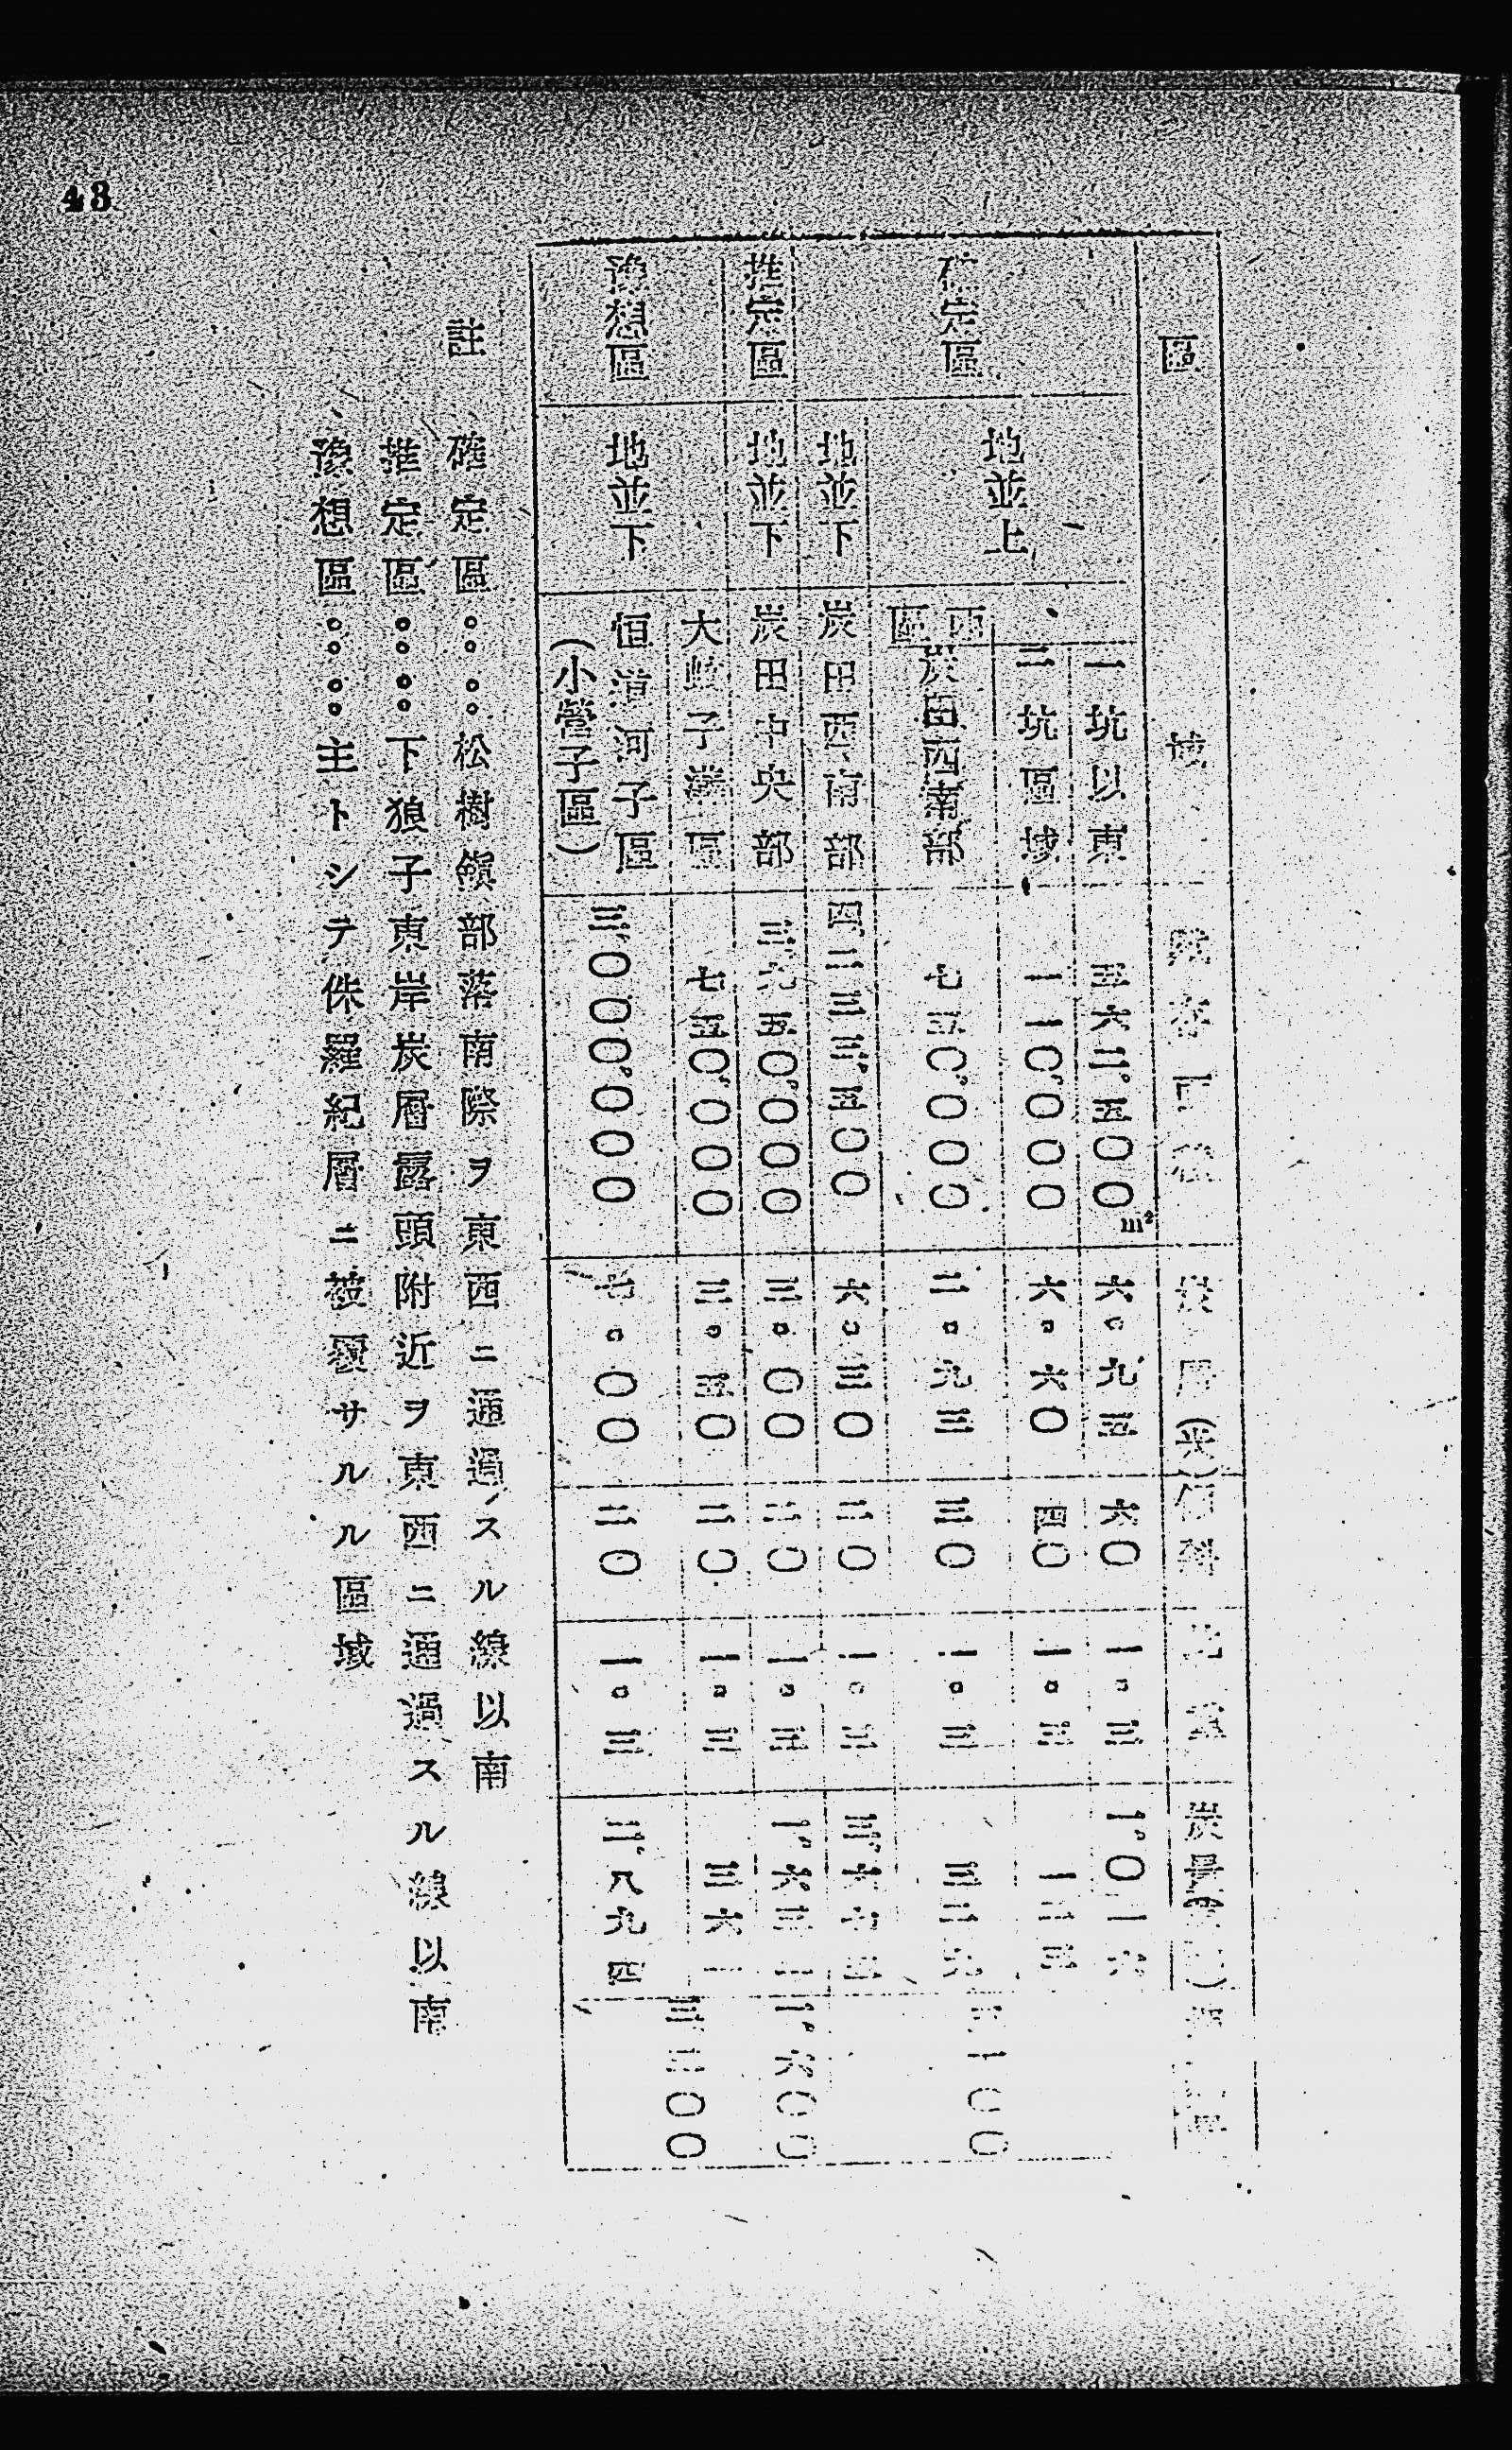 區域 炭層(米) 傾斜 比重 炭量
確定區 地並上 一坑以東 五六二,五〇〇m² 六。九五 六〇 一。三 一,〇一六
二坑區域 一一〇,〇〇〇 六。六〇 四〇 一。三 一二三
西區 炭田西南部 七五〇,〇〇〇 二。九三 三〇 一。三 三二九
地並下 炭田西南部 四,二三三,五〇〇 六。三〇 二〇 一。三 三,六七五
五一〇〇
推定區 地並下 炭田中央部 三,九五〇,〇〇〇 三。〇〇 二〇 一。三 一,六三二
一,六〇〇
豫想區 地並下 大 子溝區 七五〇,〇〇〇 三。五〇 二〇 一。三 三六一
恒道河子區
(小營子區) 三,〇〇〇,〇〇〇 七。〇〇 二〇 一。三 二,八九四
三,二〇〇
註 確定區:::松樹鎭部落南際ヲ東西ニ通過スル線以南
推定區:::下狼子東岸炭層露頭附近ヲ東西ニ通過スル線以南
豫想區:::主トシテ侏羅紀層ニ被覆サルル區域
43